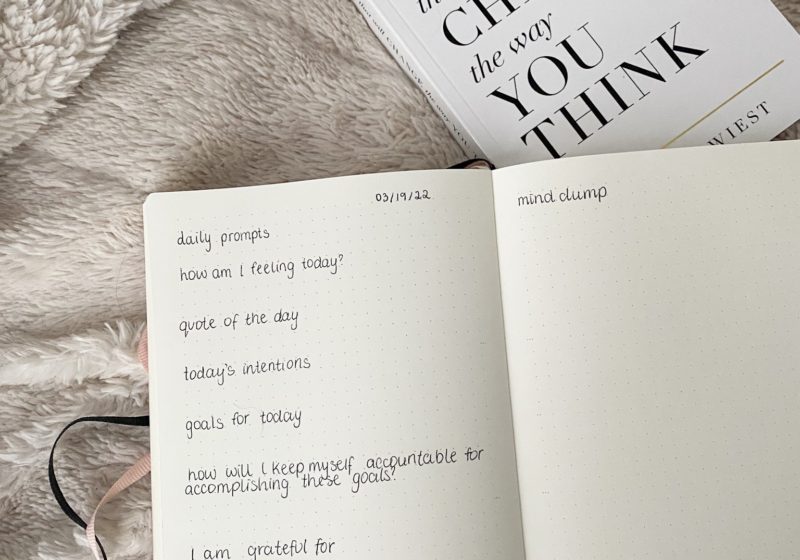 CH
the way
YOU
THINK
WIEST
CHANGE the way YOU
03/19/22
daily prompts
how am I feeling today?
quote of the day
today's intentions
goals for today
how will I keep myself accountable for
accomplishing these goals?
I am grateful for
mind dump